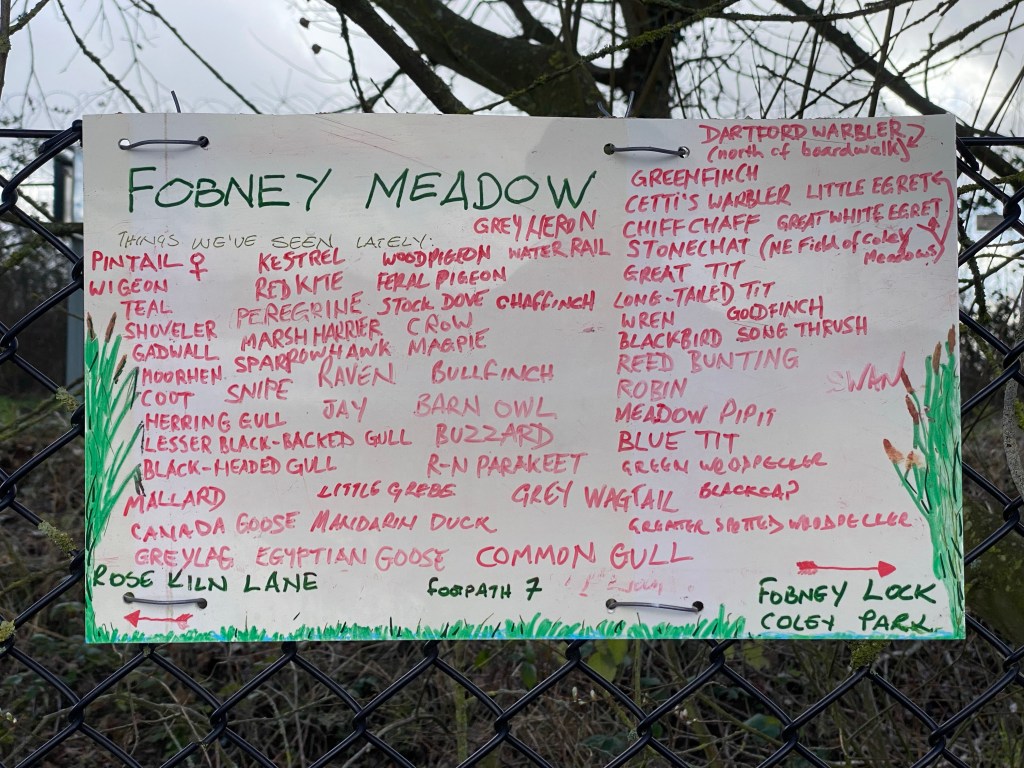 FOBNEY MEADOW
THINGS WE'VE SEEN LATELY:
PINTAIL ♀
WIGEON
TEAL
SHOVELER
GADWALL
MOORHEN
COOT
HERRING GULL
LESSER BLACK-BACKED GULL
BLACK-HEADED GULL
MALLARD
CANADA GOOSE MANDARIN DUCK
GREYLAG EGYPTIAN GOOSE COMMON GULL
KESTREL
RED KITE
PEREGRINE
MARSH HARRIER
SPARROWHAWK
SNIPE
RAVEN
JAY
LITTLE GREBE
GREY HERON
WOODPIGEON WATER RAIL
FERAL PIGEON
STOCK DOVE CHAFFINCH
CROW
MAGPIE
BULLFINCH
BARN OWL
BUZZARD
R-N PARAKEET
GREY WAGTAIL
DARTFORD WARBLER
(north of boardwalk)
GREENFINCH
CETTI'S WARBLER LITTLE EGRET
CHIFFCHAFF GREAT WHITE EGRET
STONECHAT (NE Field of Coley
Meadows)
GREAT TIT
LONG-TAILED TIT
WREN GOLDFINCH
BLACKBIRD SONG THRUSH
REED BUNTING
ROBIN SWAN
MEADOW PIPIT
BLUE TIT
GREEN WOODPECCER
BLACKCAP
GREATER SPOTTED WOODPECCER
ROSE KILN LANE
FOOTPATH 7
FOBNEY LOCK
COLEY PARK